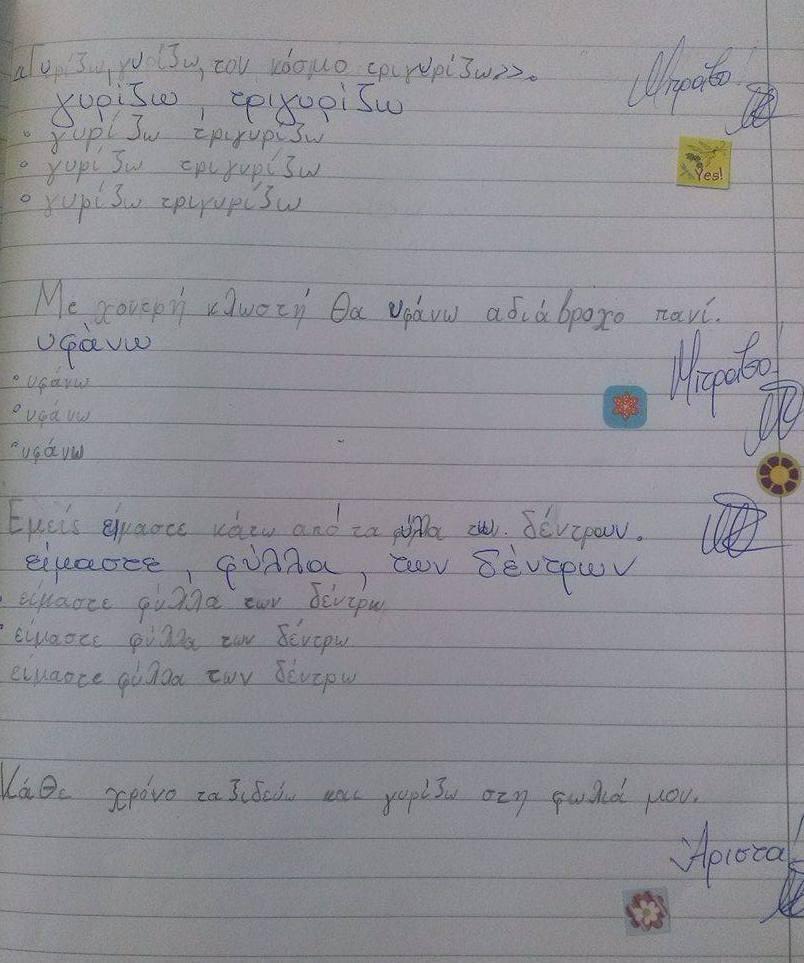 «Γυρίζω, γυρίζω, τον κόσμο τριγυρίζω>>.
Μπράβο!
γυρίζω, τριγυρίζω
• γυρίζω τριγυρίζω
• γυρίζω τριγυρίζω
Yes!
• γυρίζω τριγυρίζω
Με χοντρή κλωστή θα υφάνω αδιάβροχο πανί.
υφάνω
Μπράβο!
• υφάνω
• υφάνω
• υφάνω
Εμείς είμαστε κάτω από τα φύλλα των δέντρουν.
είμαστε, φύλλα, των δέντρων
• είμαστε φύλλα των δέντρω
• είμαστε φύλλα των δέντρω
είμαστε φύλλα των δέντρω
Κάθε χρόνο ταξιδεύω και γυρίζω στη φωλιά μου.
Άριστα!